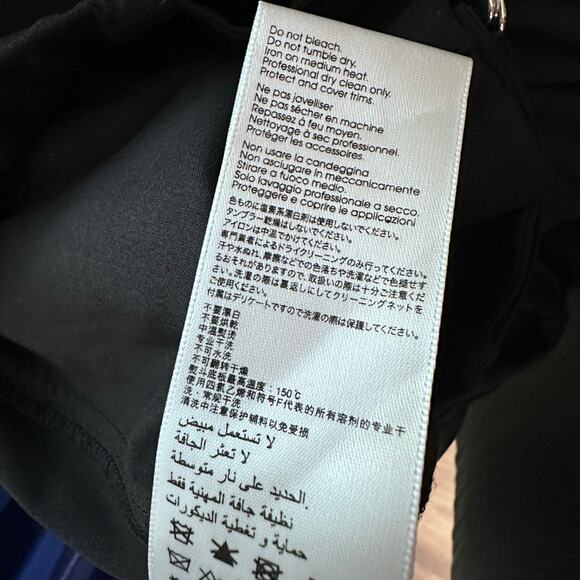 Do not bleach.
Do not tumble dry.
Iron on medium heat.
Professional dry clean only.
Protect and cover trims.
Ne pas javelliser
Ne pas sécher en machine
Repassez à feu moyen.
Nettoyage à sec professionel.
Protéger les accessoires.
Non usare la candeggina
Non asciugare in meccanicamente
Stirare a fuoco medio.
Solo lavaggio professionale a secco.
Proteggere e coprire le applicazioni
色ものに塩素系漂白剤は使用しないでください。
タンブラー乾燥はしないでください。
アイロンは中温でかけてください。
専門業者によるドライクリーニングのみ行ってください。
汗や水ぬれ、摩擦などでの色落ちや洗濯などで色褪せす
るおそれがありますので、取扱いの際は十分ご注意くだ
さい。洗濯の際は裏返しにしてクリーニングネットを
付属はデリケートですので洗濯の際は保護してください。
不要漂白
不要烘乾
中温熨烫
专业干洗
不可水洗
不可翻转干燥
熨斗底板最高温度：150℃
使用四氯乙烯和符号F代表的所有溶剂的专业干
洗，常规干洗
清洗中注意保护辅料以免受损
لا تستعمل مبيض
لا تعثر الحافة
الحديد على نار متوسطة.
نظيفة جافة المهنية فقط
حماية و تغطية الديكورات